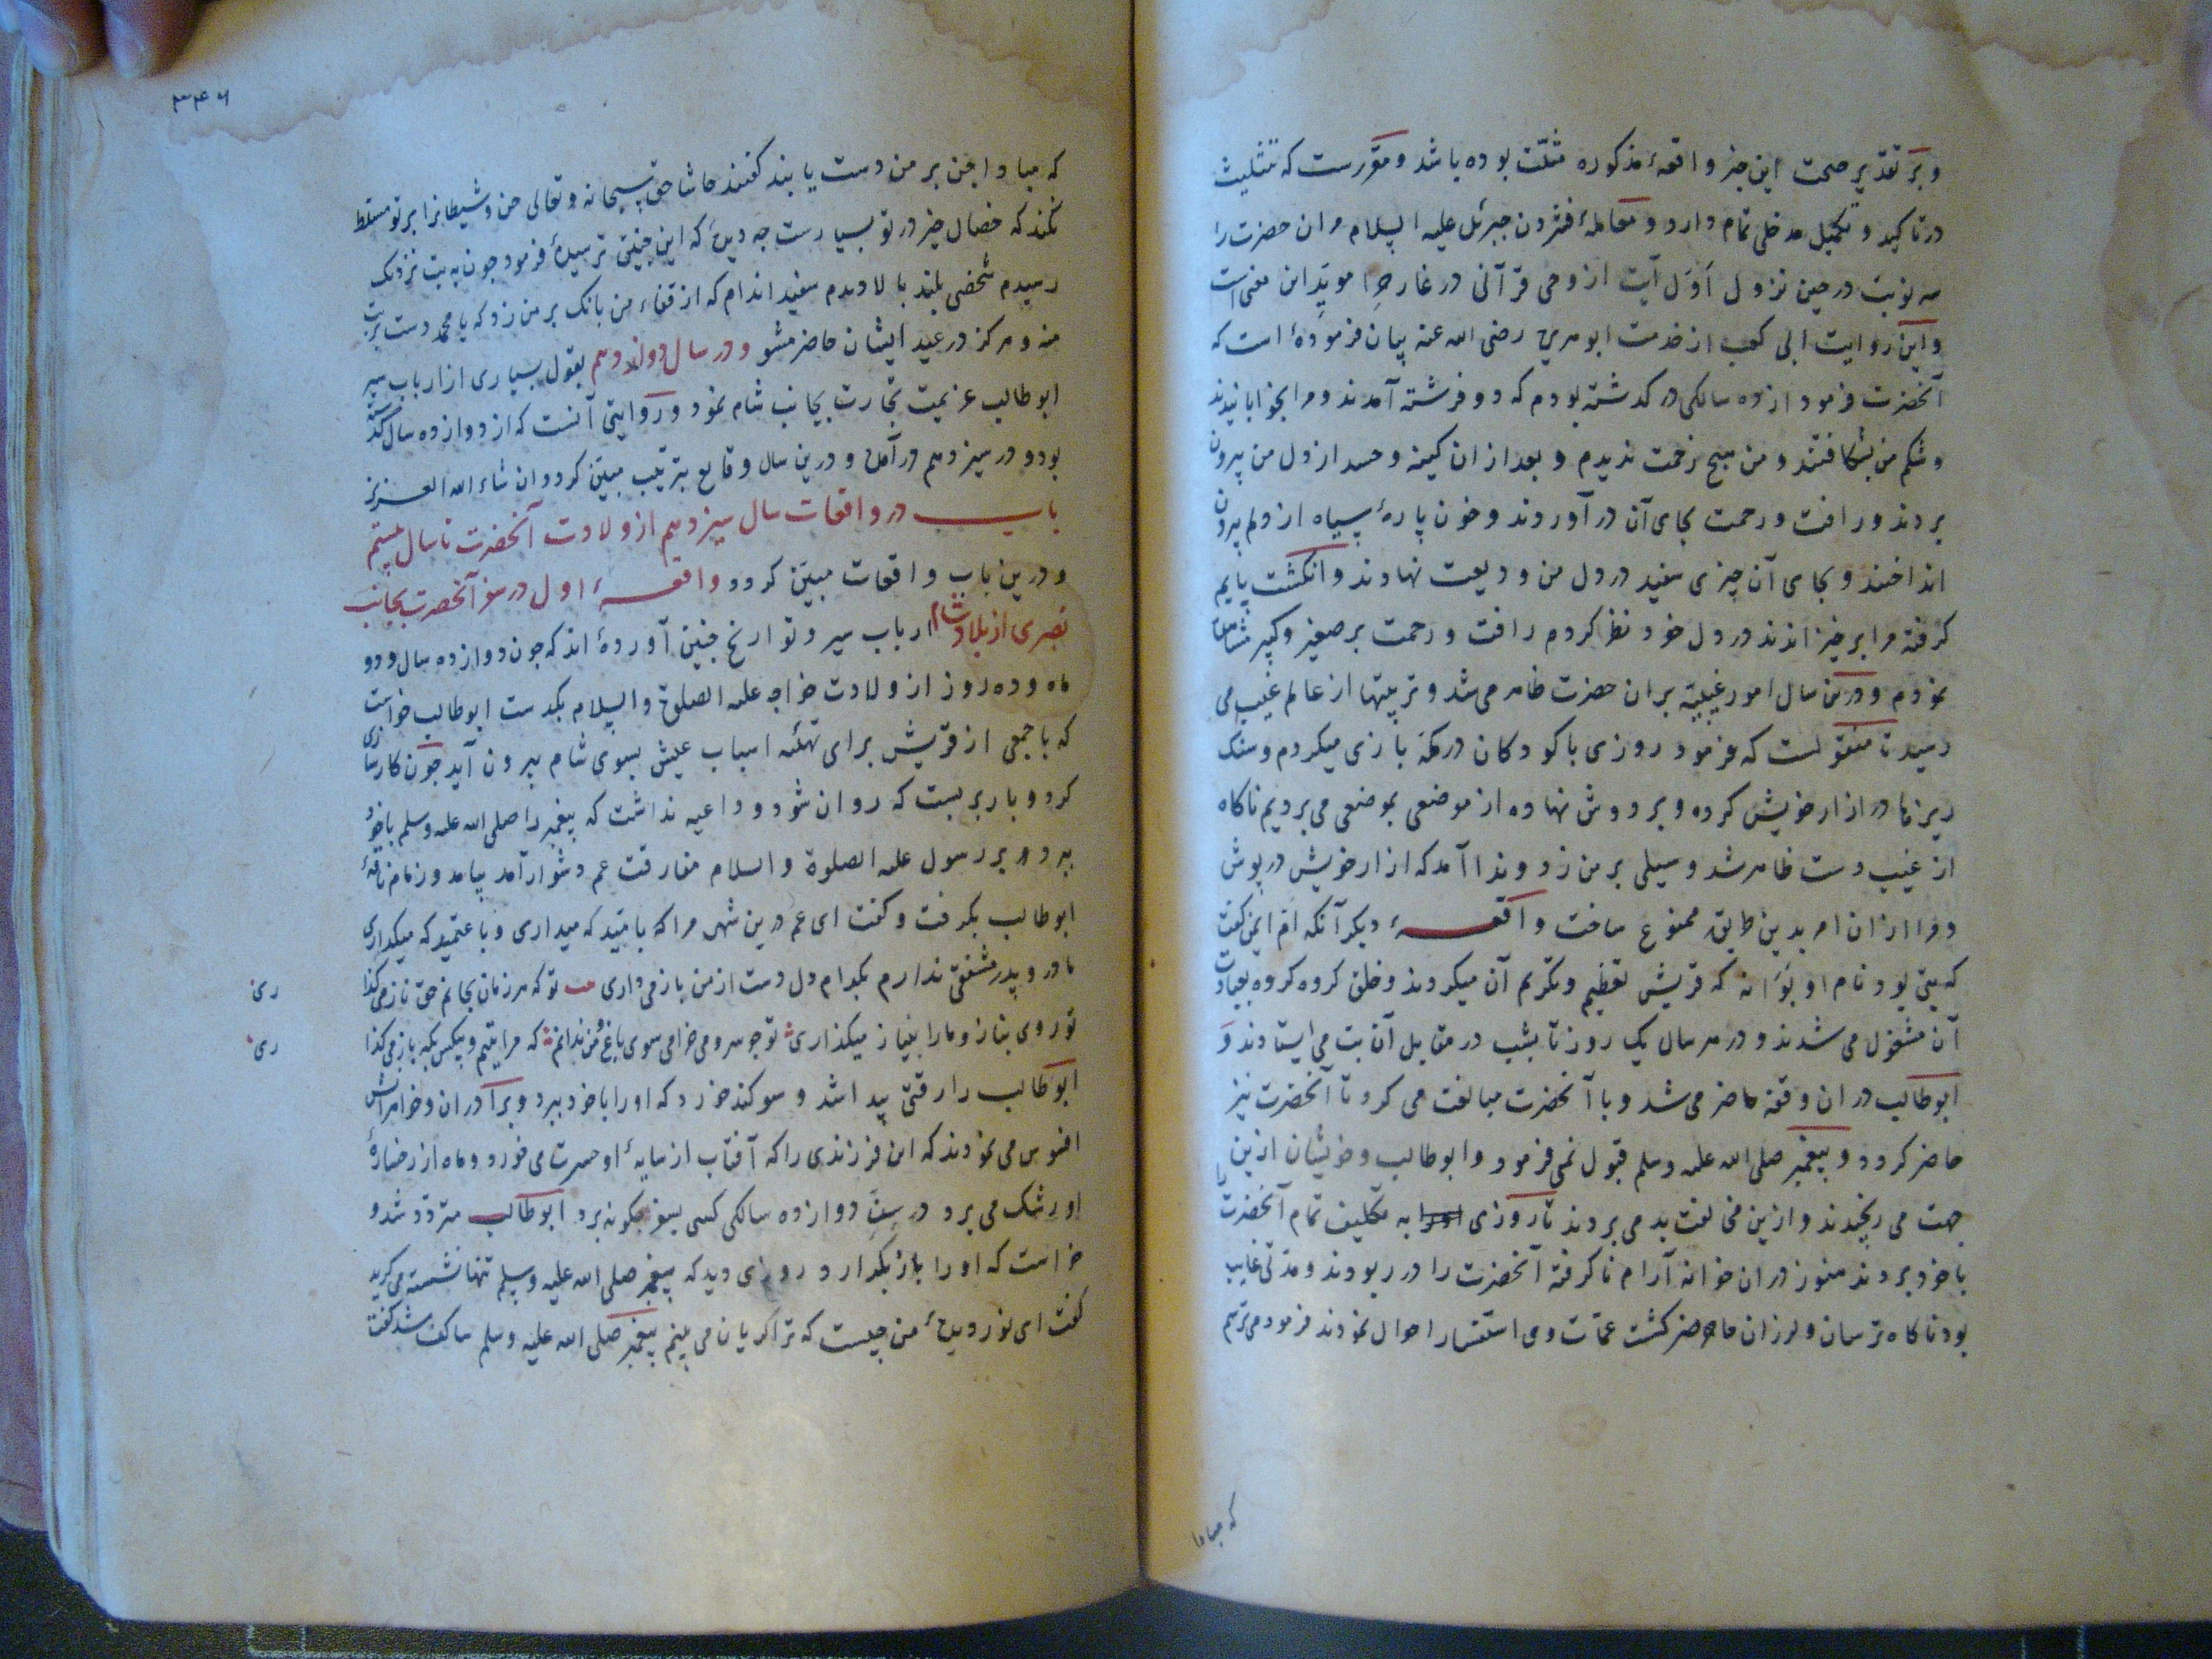 و بر تقدیر صحت این خبر واقعهٔ مذکوره مثلّث بوده باشد و مقررست که تثلیث
در تاکید و تکمیل مدخلی تمام دارد و معاملهٔ فشردن جبرئل علیه السلام مر ان حضرت را
سه نوبت در حین نزول اَوَل آیت از وحی قرآنی در غار حِرا موید این معنی است
و این روایت ابی کعب از خدمت ابوهریره رضی الله عنه بیان فرموده است که
آنحضرت فرمود از ده سالکی در کذشته بودم که دو فرشته آمدند و مرا بخوابانیدند
و شکم من بشکافتند و من هیچ زحمت ندیدم و بعد از ان کینه و حسد از دل من بیرون
بردند و رافت و رحمت بجای آن در آوردند و خون پارهٔ سیاه از دلم بیرون
انداختند و بجای آن چیزی سفید در دل من ودیعت نهادند و انکشت پایم
کرفته مرا برخیزاندند در دل خود نظر کردم رافت و رحمت بر صغیر و کبیر مشاهده
نمودم و درین سال امور غیبیّه بران حضرت ظاهر می شد و تربیتها از عالم غیب می
رسید تا منقولست که فرمود روزی با کودکان در مکه بازی میکردم و سنک
ریزها در ازار خویش کرده و بر دوش نهاده از موضعی بموضعی می بردیم ناکاه
از غیب دست ظاهر شد و سیلی بر من زد و ندا آمد که ازار خویش در پوش
و مرا از ان امر بدین طریق ممنوع ساخت واقعـــهٔ دیکر آنکه ام ایمن کفت
که بتی بود نام او بُوَانه که قریش تعظیم و تکریم آن میکردند و خلق کروه کروه بعبادت
آن مشغول می شدند و در هر سال یک روز تا بشب در مقابل آن بت می ایستادند و
ابوطالب در ان وقفه حاضر می شد و با آنحضرت مبالغت می کرد تا آنحضرت نیز
حاضر کردد و پیغمبر صلی الله علیه وسلم قبول نمی فرمود و ابوطالب و خویشان ازین
جهت می رنجیدند و ازین مخالفت بد می بردند تا روزی اورا به تکلیف تمام آنحضرت را
با خود بردند هنوز در ان خوانه آرام ناکرفته آنحضرت را در ربودند و مدتی غایب
بود ناکاه ترسان و لرزان حاضر کشت عمّات وی استفسار احوال نمودند فرمود می ترسم
که مبادا
۳۴۶
که مبادا جن بر من دست یابند کفتند حاشا حق سبحانه و تعالی جن و شیطانرا بر تو مسلط
نکند که خصال خیر در تو بسیارست چه دیدهٔ که این چنین ترسیدهٔ فرمود چون به بت نزدیک
رسیدم شخصی بلند بالا دیدم سفید اندام که از قفاء من بانک بر من زد که یا محمد دست بر بت
منه و هرکز در عید ایشان حاضر مشو و در سال دوازدهم بقول بسیاری از ارباب سیر
ابوطالب عزیمت تجارت بجانب شام نمود و روایتی آنست که از دوازده سال کذشته
بود و در سیزدهم در آمده و درین سال وقایع بترتیب مبیّن کردد ان شاء الله العزیز
بابـــ در واقعات سال سیزدهم از ولادت آنحضرت تا سال بیستم
و درین باب واقعات مبیّن کردد واقعـــهٔ اول در سفر آنحضرت بجانب
بصری از بلاد شام ارباب سیر و تواریخ چنین آورده اند که چون دوازده سال و دو
ماه و ده روز از ولادت خواجه علیه الصلوة والسلام بکدشت ابوطالب خواست
که با جمعی از قریش برای تهئه اسباب عیش بسوی شام بیرون آید چون کارسازی
کرد و بار بربست که روان شود و داعیه نداشت که پیغمبر را صلی الله علیه وسلم باخود
ببرد بر رسول علیه الصلوة والسلام مفارقت عم دشوار آمد بیامد و زمام ناقهٔ
ابوطالب بکرفت و کفت ای عم درین شهر مرا که بامید که میداری و باعتمید که میکداری
مادر و پدر مشفق ندارم بکدام دل دست از من باز می داری تو که هر زمان بجانم صد ناز می کذاری
تو روی بناز و مارا بنیاز میکذاری تو چو سرو می خرامی سوی باغ و من ندانم که مرا یتیم و بیکس بکه باز می کذاری
ابوطالب را رقتی پیدا شد و سوکند خورد که اورا با خود ببرد و برادران و خواهرانش
افسوس می نمودند که این فرزندی را که آفتاب از سایهٔ او حسرت می خورد و ماه از رخسارهٔ
او رشک می برد در سنِّ دوازده سالکی کسی بسفر چکونه برد ابوطالب متردّد شد و
خواست که او را باز بکدارد روزی دید که پیغمبر صلی الله علیه وسلم تنها نشسته می کرید
کفت ای نور دیدهٔ من چیست که ترا کریان می بینم پیغمبر صلی الله علیه وسلم ساکت شد کفت